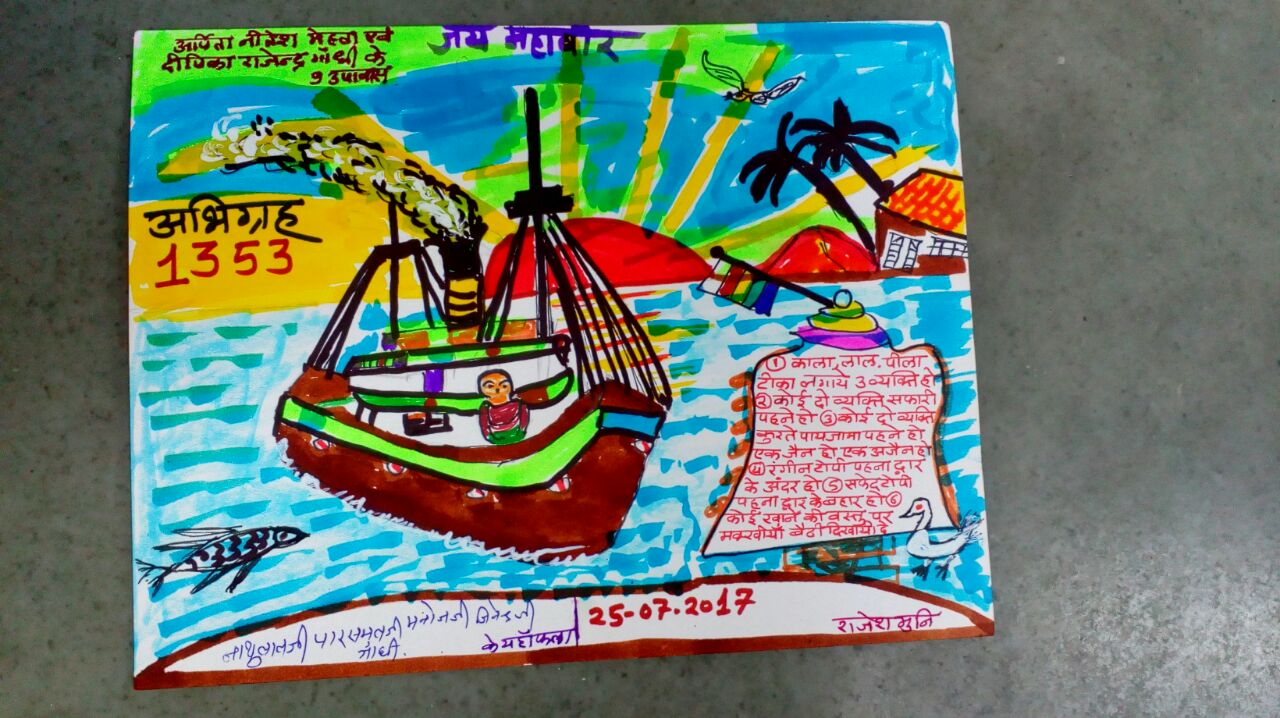 अर्पिता नीलेश मेहता एवं
दीपिका राजेन्द्र गाँधी के
9 उपवास
जय महावीर
अभिग्रह
1353
① काला, लाल, पीला
टीका लगाये 3 व्यक्ति हो
② कोई दो व्यक्ति सफारी
पहने हो ③ कोई दो व्यक्ति
कुरते पायजामा पहने हो
एक जैन हो एक अजैन हो
④ रंगीन टोपी पहना द्वार
के अंदर हो ⑤ सफेद टोपी
पहना द्वार के बहार हो ⑥
कोई खाने की वस्तु पर
मक्खीयाँ बैठी दिखायी दे
नाथुलालजी पारसमलजी मनोजजी जिनेन्द्रजी
गाँधी.
के यहाँ फला
25-07-2017
राजेश मुनि